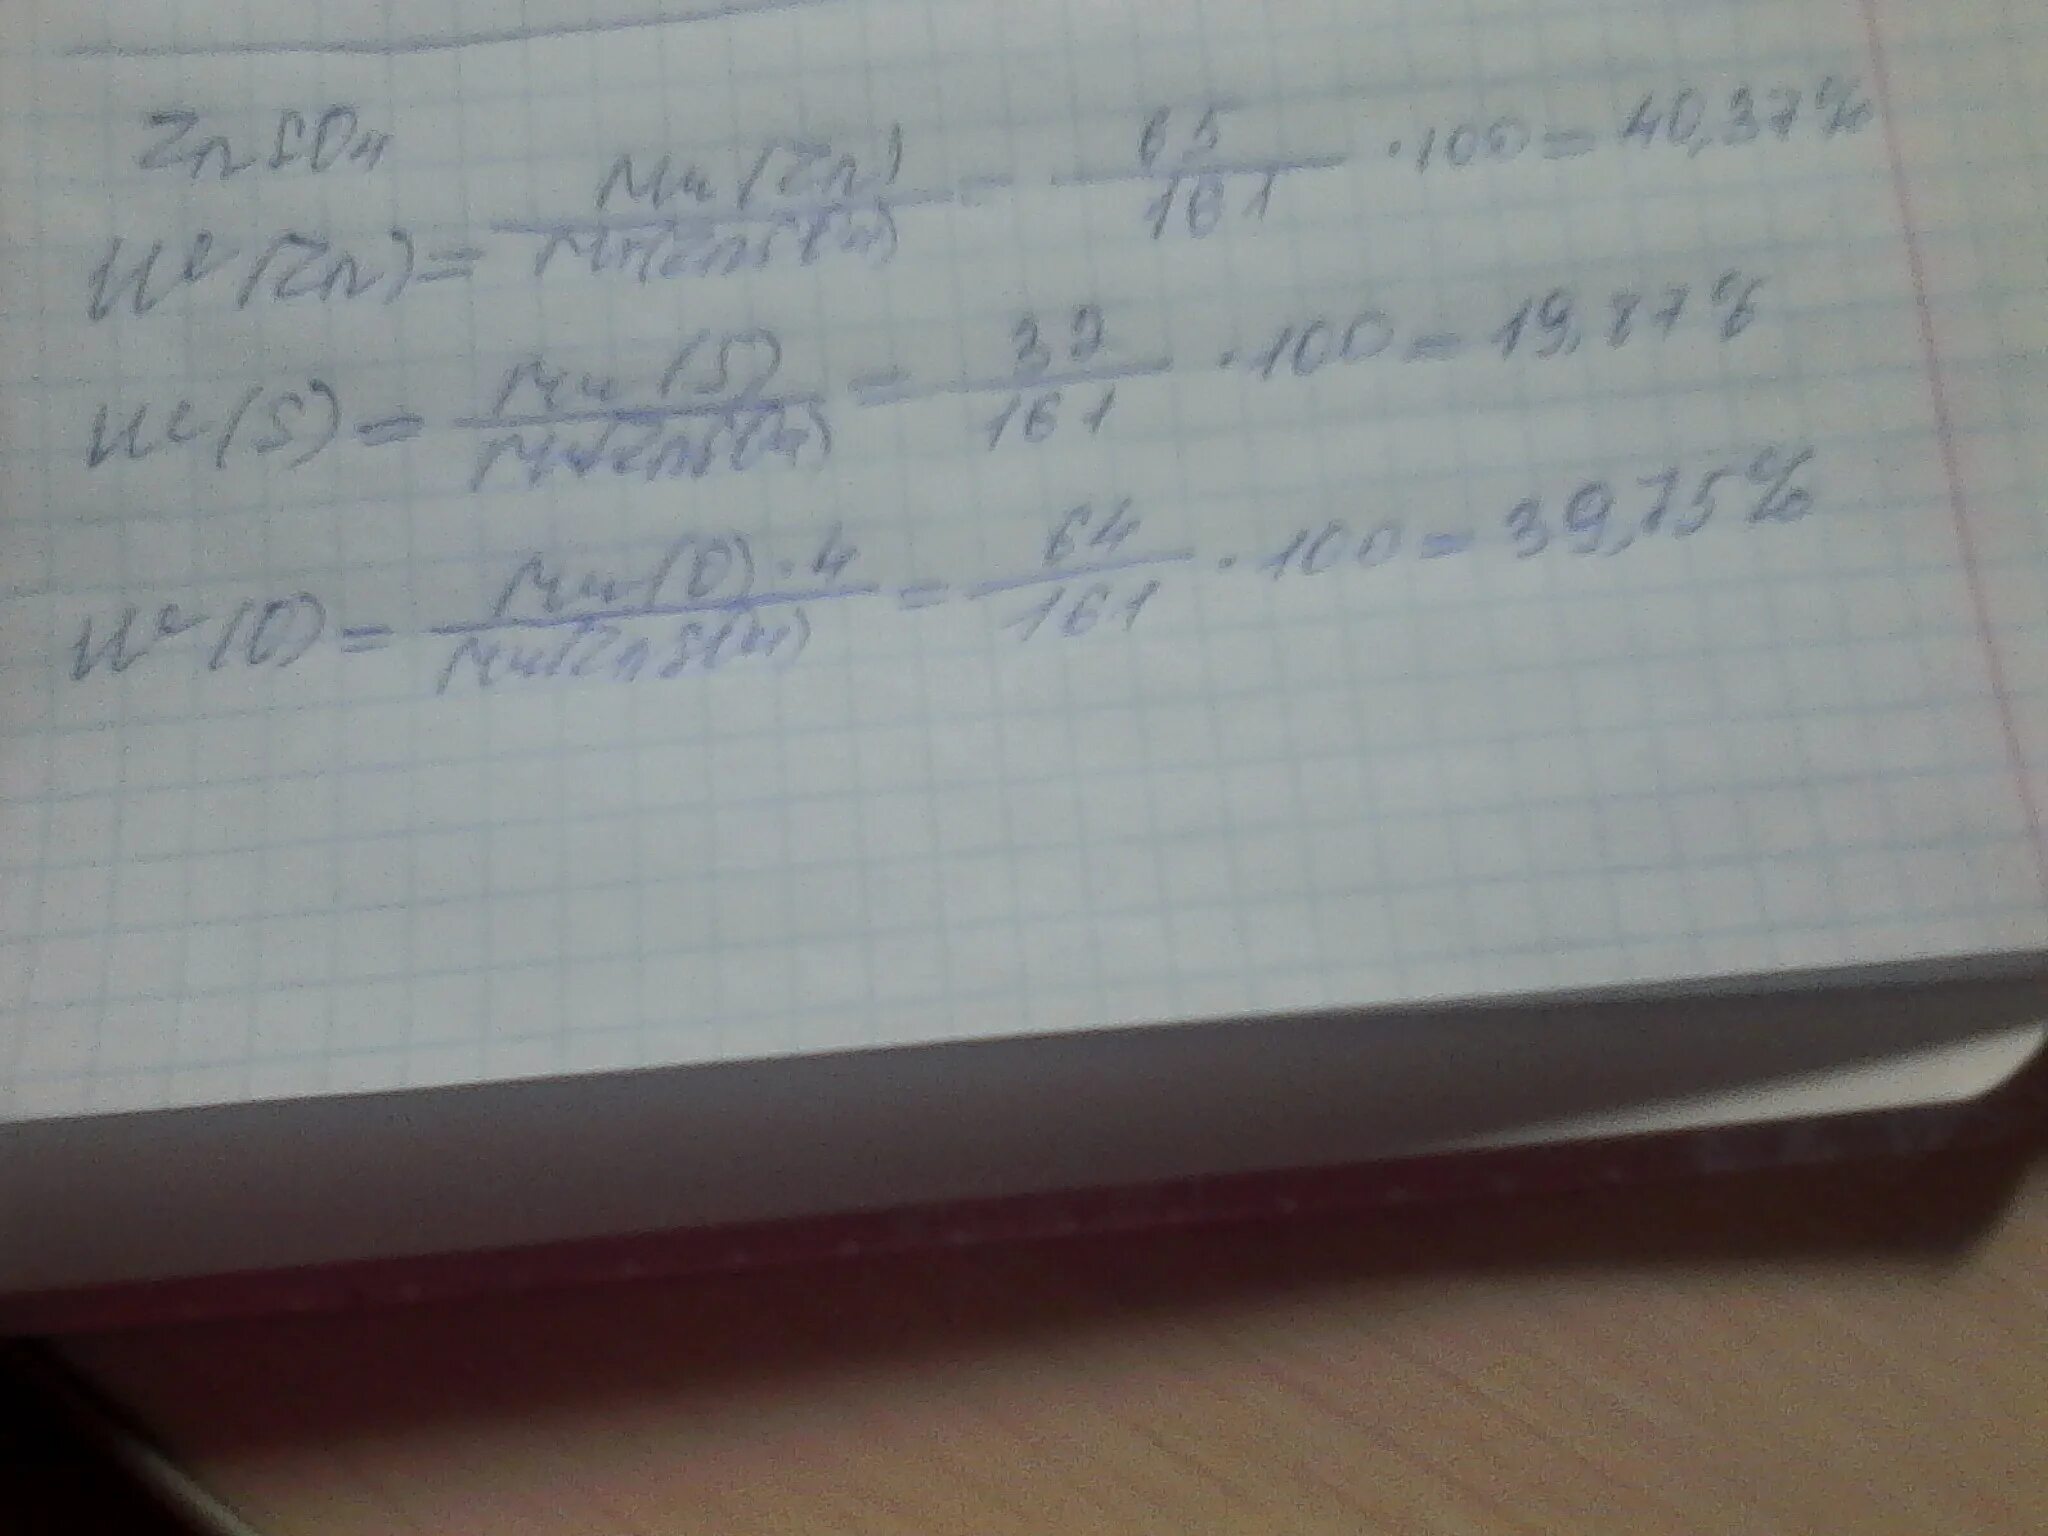 ZnSO₄
W(Zn) = Mч(Zn) / Mч(ZnSO₄) = 65 / 161 · 100 = 40,37%
W(S) = Mч(S) / Mч(ZnSO₄) = 32 / 161 · 100 = 19,87%
W(O) = Mч(O) · 4 / Mч(ZnSO₄) = 64 / 161 · 100 = 39,75%